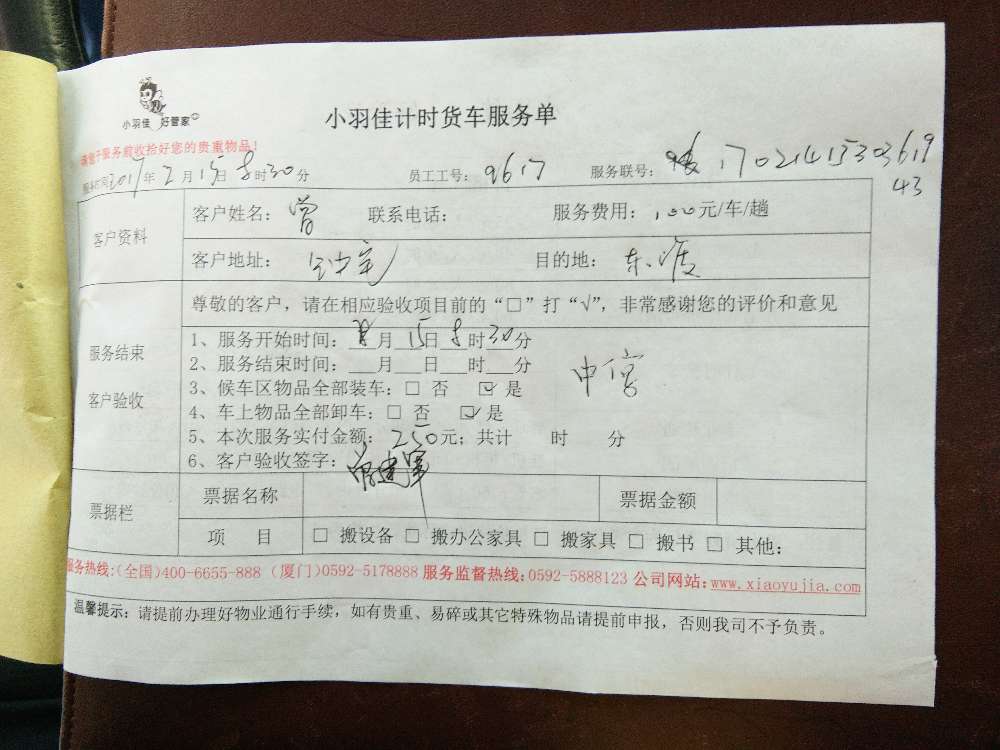 小羽佳 好管家
小羽佳计时货车服务单
请您于服务前收拾好您的贵重物品!
2017年2月15日8时30分 员工工号: 9617 服务联号: 17021415303619
43
客户资料
客户姓名: 曾 联系电话: 服务费用: 100元/车/趟
客户地址: 目的地: 东渡
服务结束
客户验收
尊敬的客户,请在相应验收项目前的“□”打“√”,非常感谢您的评价和意见
1、服务开始时间: 月15日8时30分
2、服务结束时间:___月___日___时___分
3、候车区物品全部装车:□ 否 ☑ 是
4、车上物品全部卸车:□ 否 ☑ 是
5、本次服务实付金额: 250元; 共计 时 分
6、客户验收签字:
票据栏
票据名称 票据金额
项 目 □ 搬设备 □ 搬办公家具 □ 搬家具 □ 搬书 □ 其他:
服务热线:(全国)400-6655-888 (厦门)0592-5178888 服务监督热线:0592-5888123 公司网站:www.xiaoyujia.com
温馨提示: 请提前办理好物业通行手续,如有贵重、易碎或其它特殊物品请提前申报,否则我司不予负责。